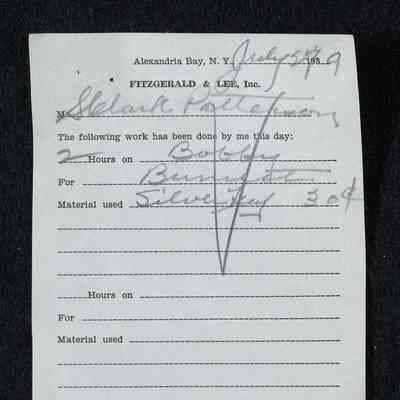 Alexandria Bay, N. Y. July 27 1939
FITZGERALD & LEE, Inc.
M S Clark Patterson
The following work has been done by me this day:
2 Hours on Bobby
For
Material used Silver 30¢
Hours on
For
Material used